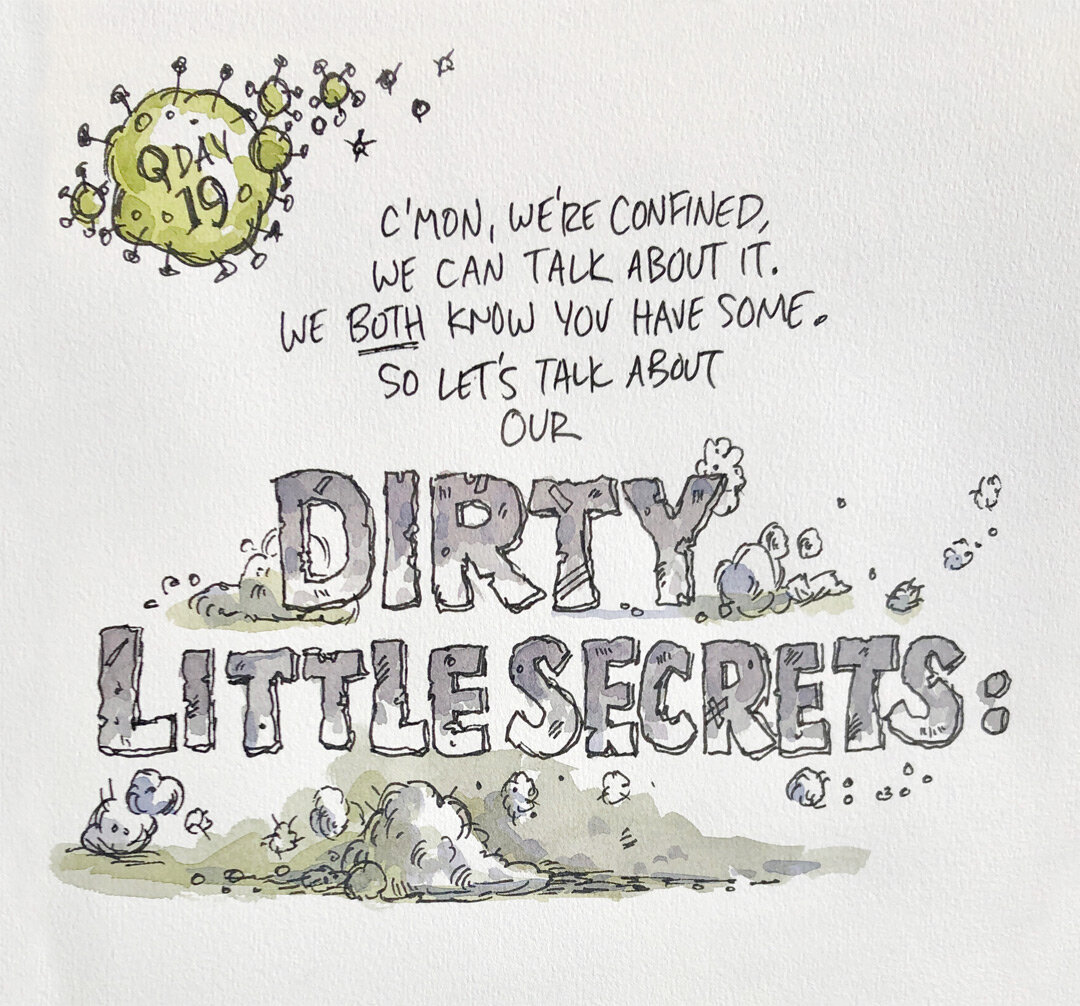 Q DAY
19
C'MON, WE'RE CONFINED,
WE CAN TALK ABOUT IT.
WE BOTH KNOW YOU HAVE SOME.
SO LET'S TALK ABOUT
OUR
DIRTY
LITTLE SECRETS: